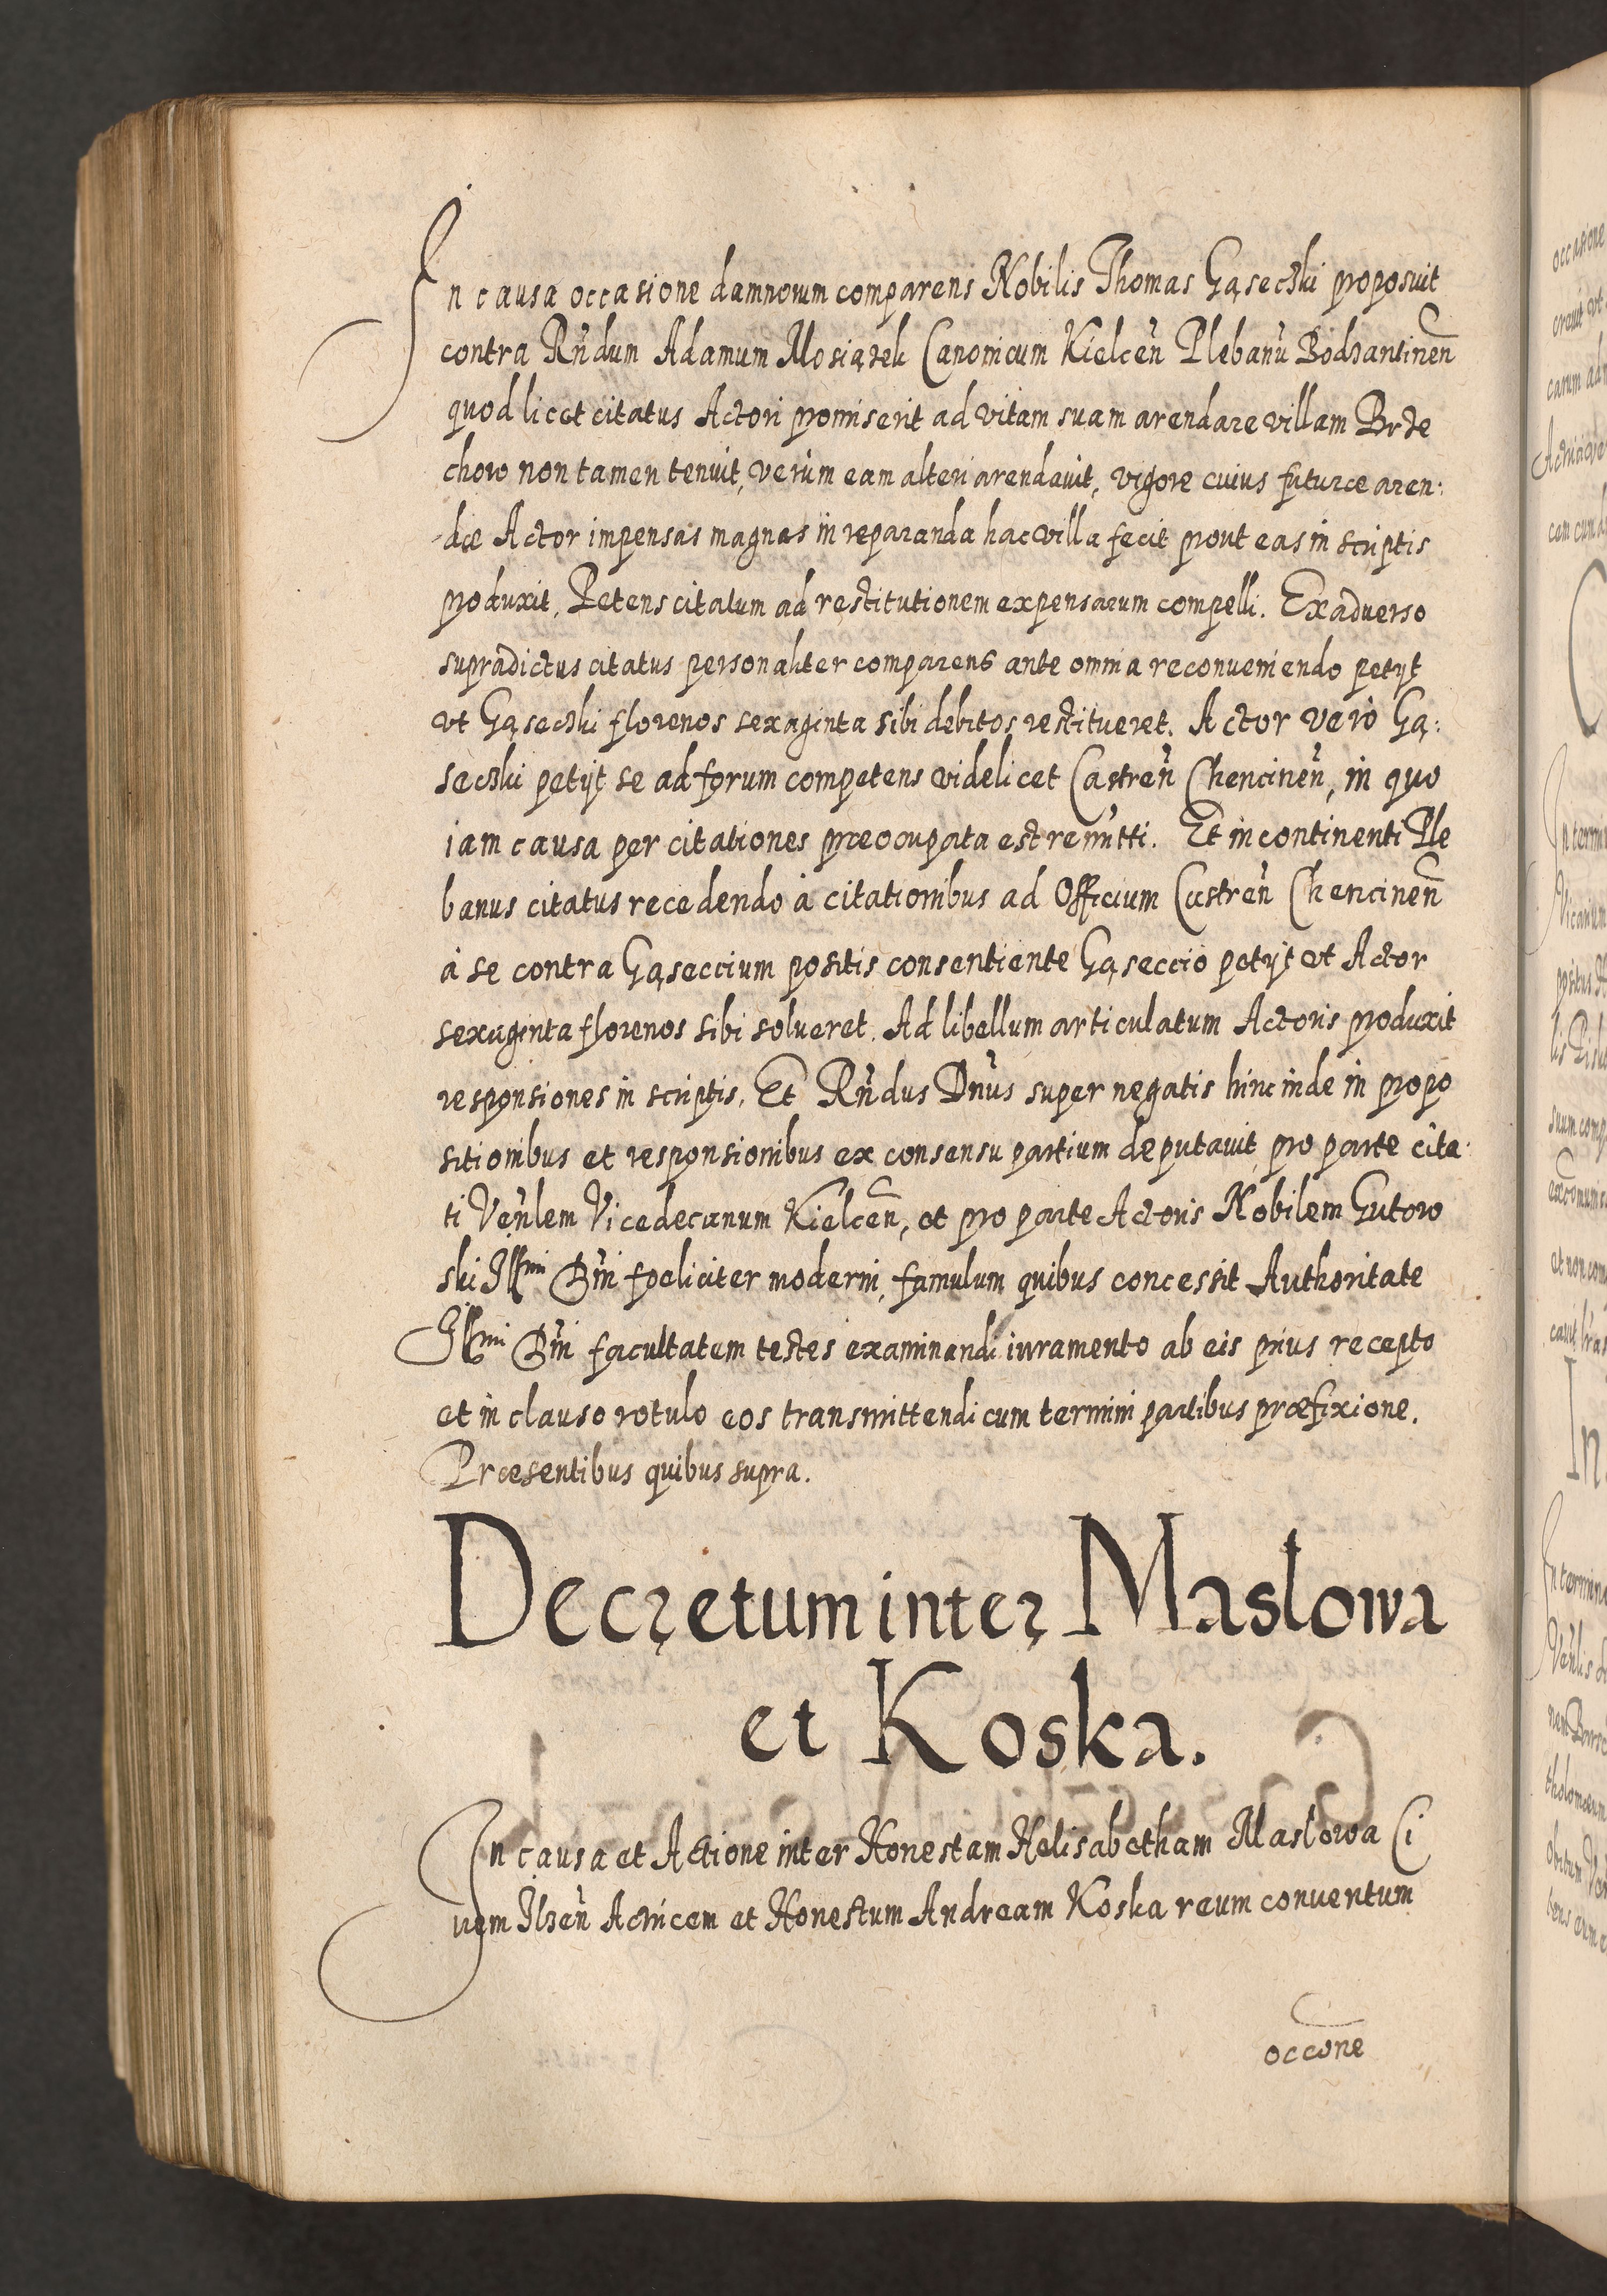 In causa occasione damnorum comparens Nobilis Thomas Gąsecżki proposuit
contra Rńdum Adamum Mosiążek Canonicum Kielceń Plebanū Bodzantineñ
quod licet citatus Actori promiserit ad vitam suam arendare villam Brze
chow non tamen tenuit, verùm eam alteri arendavit, vigore cuius futuræ aren:
dæ Actor impensas magnas in reparanda hac villa fecit prout eas in scriptis
produxit. Petens citatum ad restitutionem expensarum compelli. Ex adverso
supradictus citatus personaliter comparens ante omnia reconveniendo petijt
vt Gąsecżki florenos sexaginta sibi debitos restitueret. Actor verò Gą:
secżki petijt se ad forum competens videlicet Castreń Chencineń, in quo
iam causa per citationes præoccupata est remitti. Et in continenti Ple
banus citatus recedendo à citationibus ad Officium Castreń Chencineñ
à se contra Gąseccium positis consentiente Gąseccio petijt et Actor
sexaginta florenos sibi solveret. Ad libellum articulatum Actoris produxit
responsiones in scriptis. Et Rńdus Dńus super negatis hinc inde in propo
sitionibus et responsionibus ex consensu partium deputavit pro parte cita:
ti Veńlem Vicedecanum Kielceñ, et pro parte Actoris Nobilem Gutow
ski Illmi Dńi fœliciter moderni, famulum quibus concessit Authoritate
Illmi Dńi facultatem testes examinandi iuramento ab eis prius recepto
et in clauso rotulo eos transmittendi cum termini partibus præfixione.
Præsentibus quibus supra.
Decretum inter Maslowa
et Koska.
In causa et Actione inter Honestam Helisabetham Maslowa Ci
vem Ilzeń Actricem et Honestum Andream Koska reum conventum
occõne